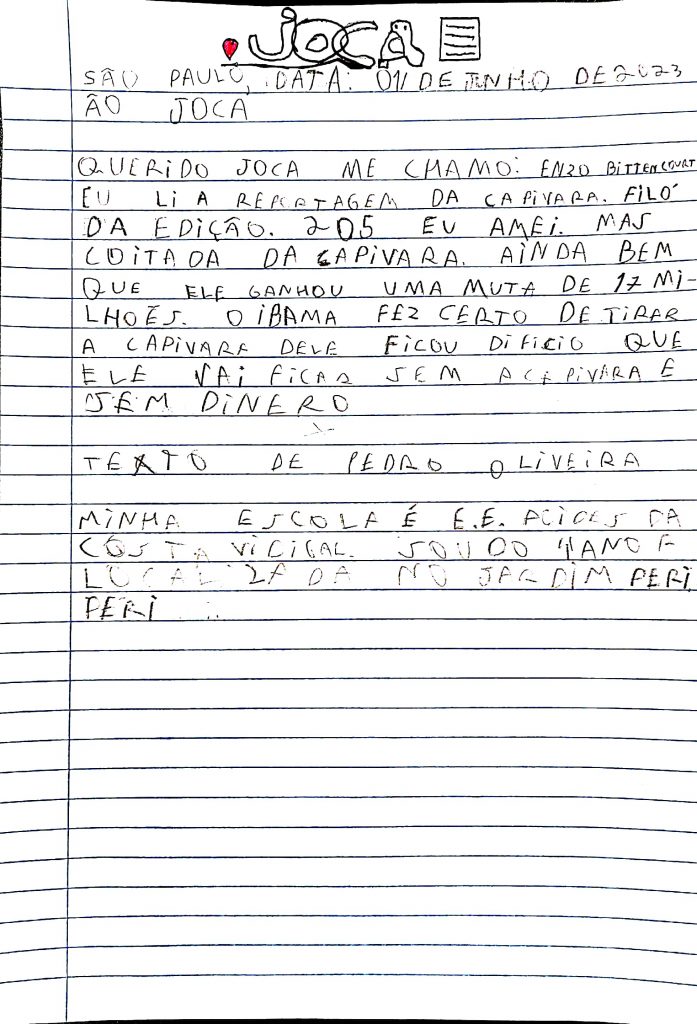 JOCA
SÃO PAULO, DATA: 01/ DE JUNHO DE 2023
ÃO JOCA
QUERIDO JOCA ME CHAMO: ENZO BITTENCOURT
EU LI A REPORTAGEM DA CAPIVARA. FILÓ
DA EDIÇÃO. 205 EU AMEI. MAS
COITADA DA CAPIVARA. AINDA BEM
QUE ELE GANHOU UMA MUTA DE 17 MI-
LHOES. O IBAMA FEZ CERTO DE TIRAR
A CAPIVARA DELE FICOU DIFICIO QUE
ELE VAI FICAR SEM A CAPIVARA E
SEM DINERO
TEXTO DE PEDRO OLIVEIRA
MINHA ESCOLA É E.E. DA
COSTA SOU DO 4 ANO F
NO JARDIM PERI
PERI